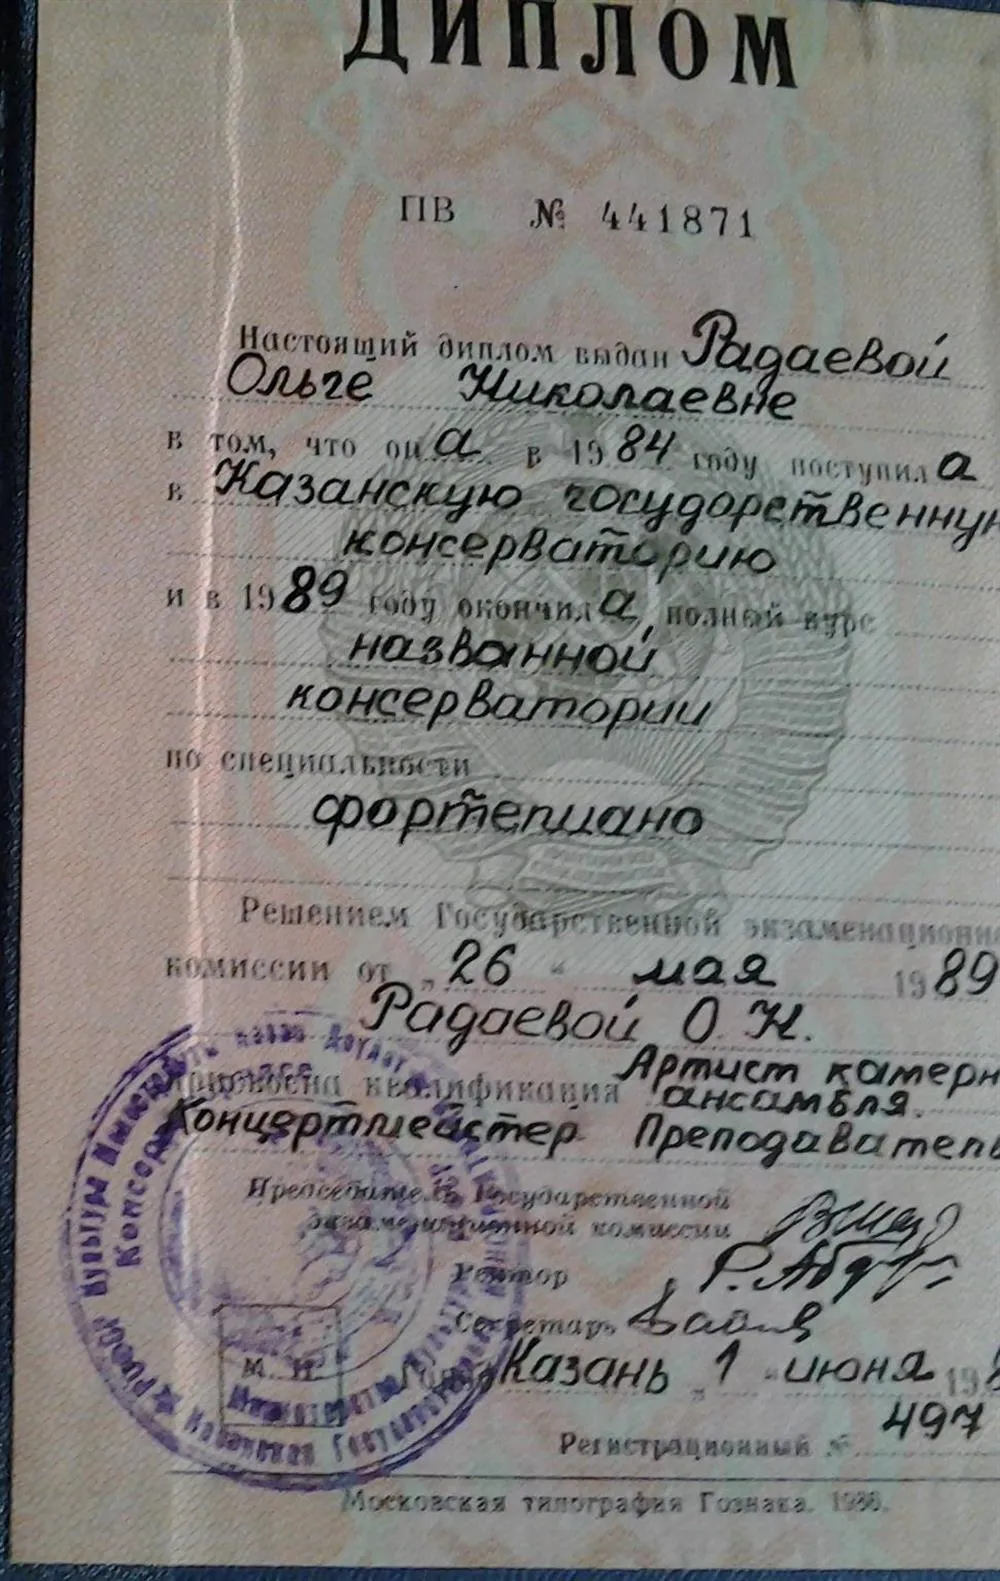 ДИПЛОМ
ПВ № 441871
Настоящий диплом выдан Радаевой
Ольге Николаевне
в том, что она в 1984 году поступила
в Казанскую государственную
консерваторию
и в 1989 году окончила полный курс
названной
консерватории
по специальности
фортепиано
Решением Государственной экзаменационно
комиссии от „26" мая 1989
Радаевой О. Н.
присвоена квалификация Артист камерн
ансамбля.
Концертмейстер Преподаватель
Председатель Государственной
экзаменационной комиссии
Ректор Р. Абд
Секретарь
Казань „1" июня 19
Регистрационный № 497
Московская типография Гознака. 1988.
М. П.
Министерство
Казанская Государственная